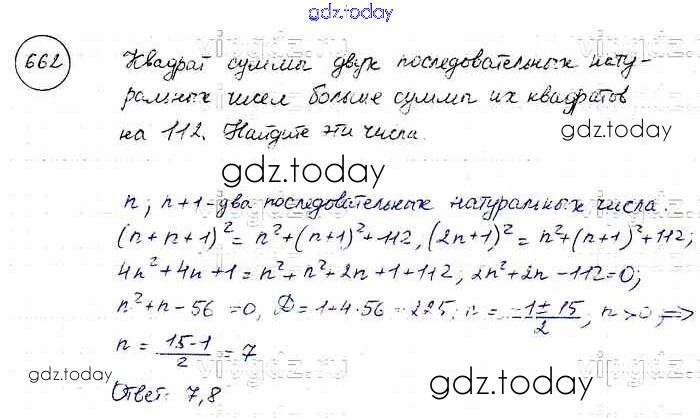 gdz.today
662
Квадрат суммы двух последовательных нату-
ральных чисел больше суммы их квадратов
на 112. Найдите эти числа.
gdz.today
n; n+1 - два последовательных натуральных числа.
(n+n+1)² = n²+(n+1)²+112, (2n+1)² = n²+(n+1)²+112;
4n²+4n+1 = n²+n²+2n+1+112; 2n²+2n-112=0;
n²+n-56=0, D=1+4·56=225; n = (-1±15)/2; n>0 =>
n = (15-1)/2 = 7
gdz.today
gdz.today
Ответ: 7,8